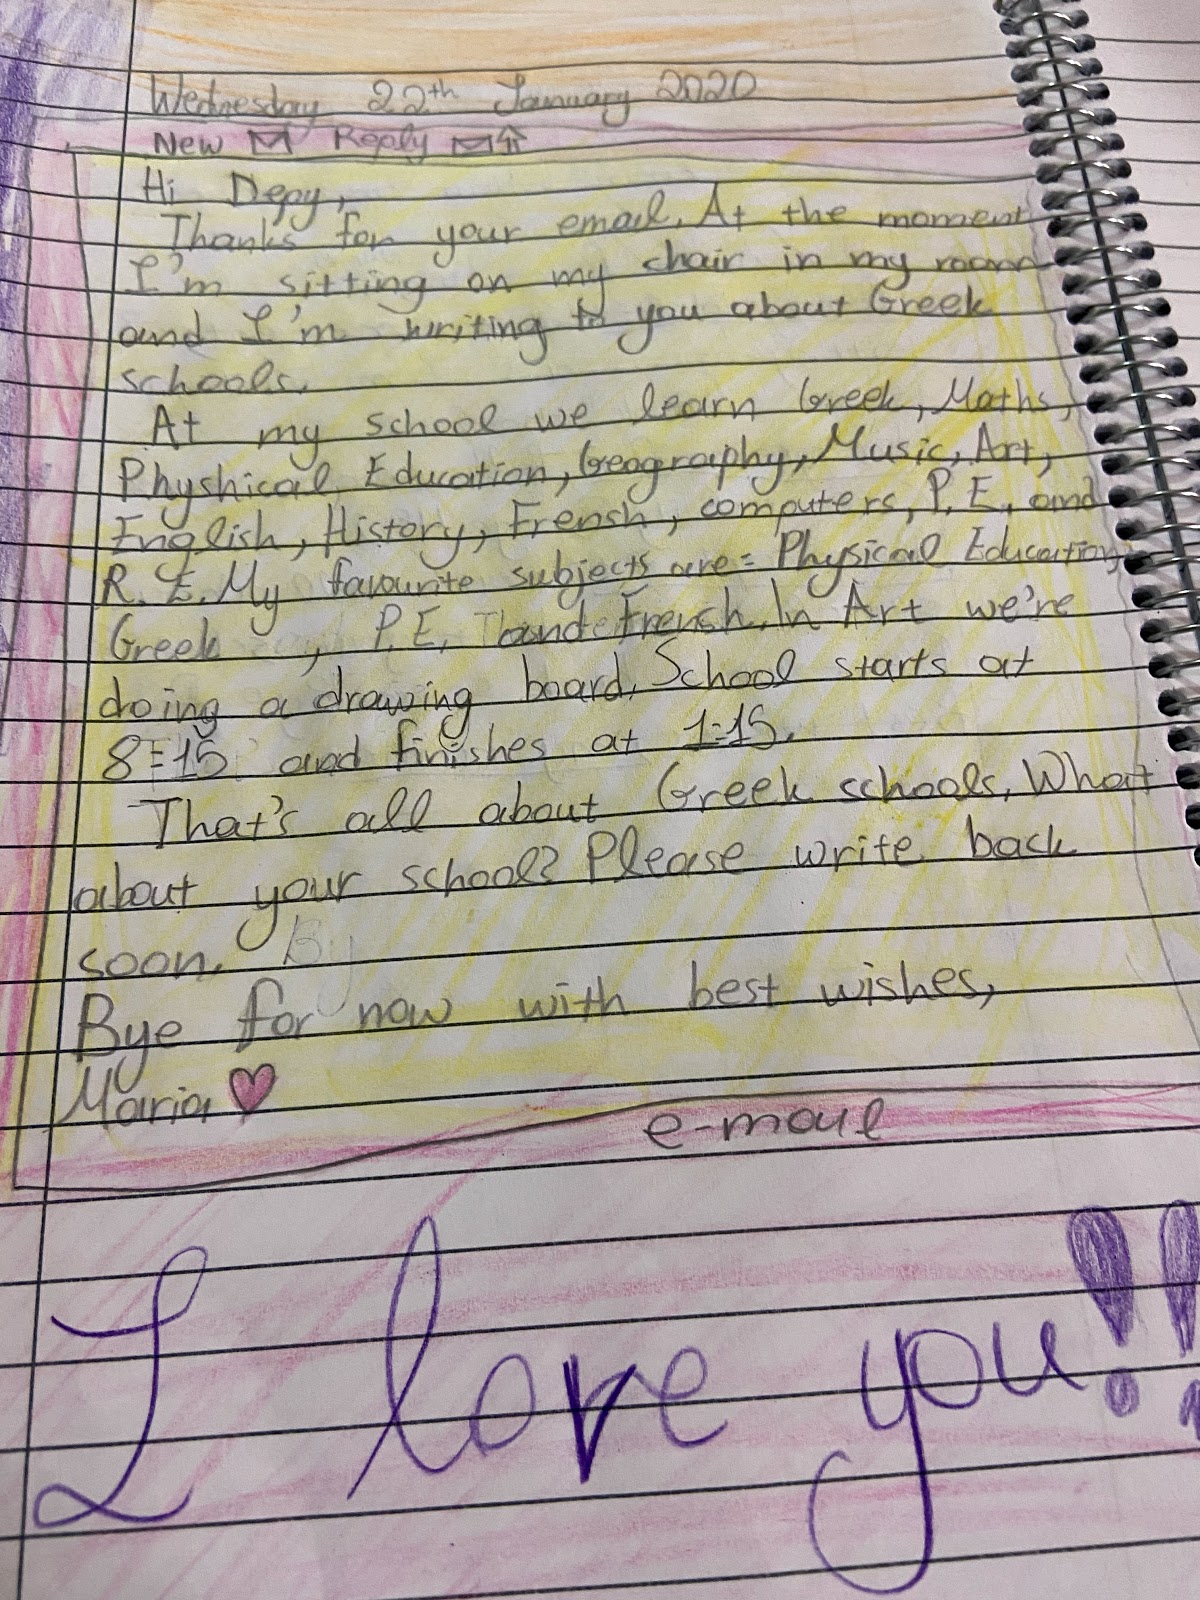 Wednesday 22th January 2020
New Reply
Hi Depy,
Thanks for your email. At the moment
I'm sitting on my chair in my room
and I'm writing to you about Greek
schools.
At my school we learn Greek, Maths,
Physhical Education, Geography, Music, Art,
English, History, Frensh, computers, P.E, and
R.E. My favourite subjects are: Physical Education
Greek , P.E, and French. In Art we're
doing a drawing board. School starts at
8:15 and finishes at 1:15.
That's all about Greek schools. What
about your school? Please write back
soon. By
Bye for now with best wishes,
Maria
e-mail
I love you!!